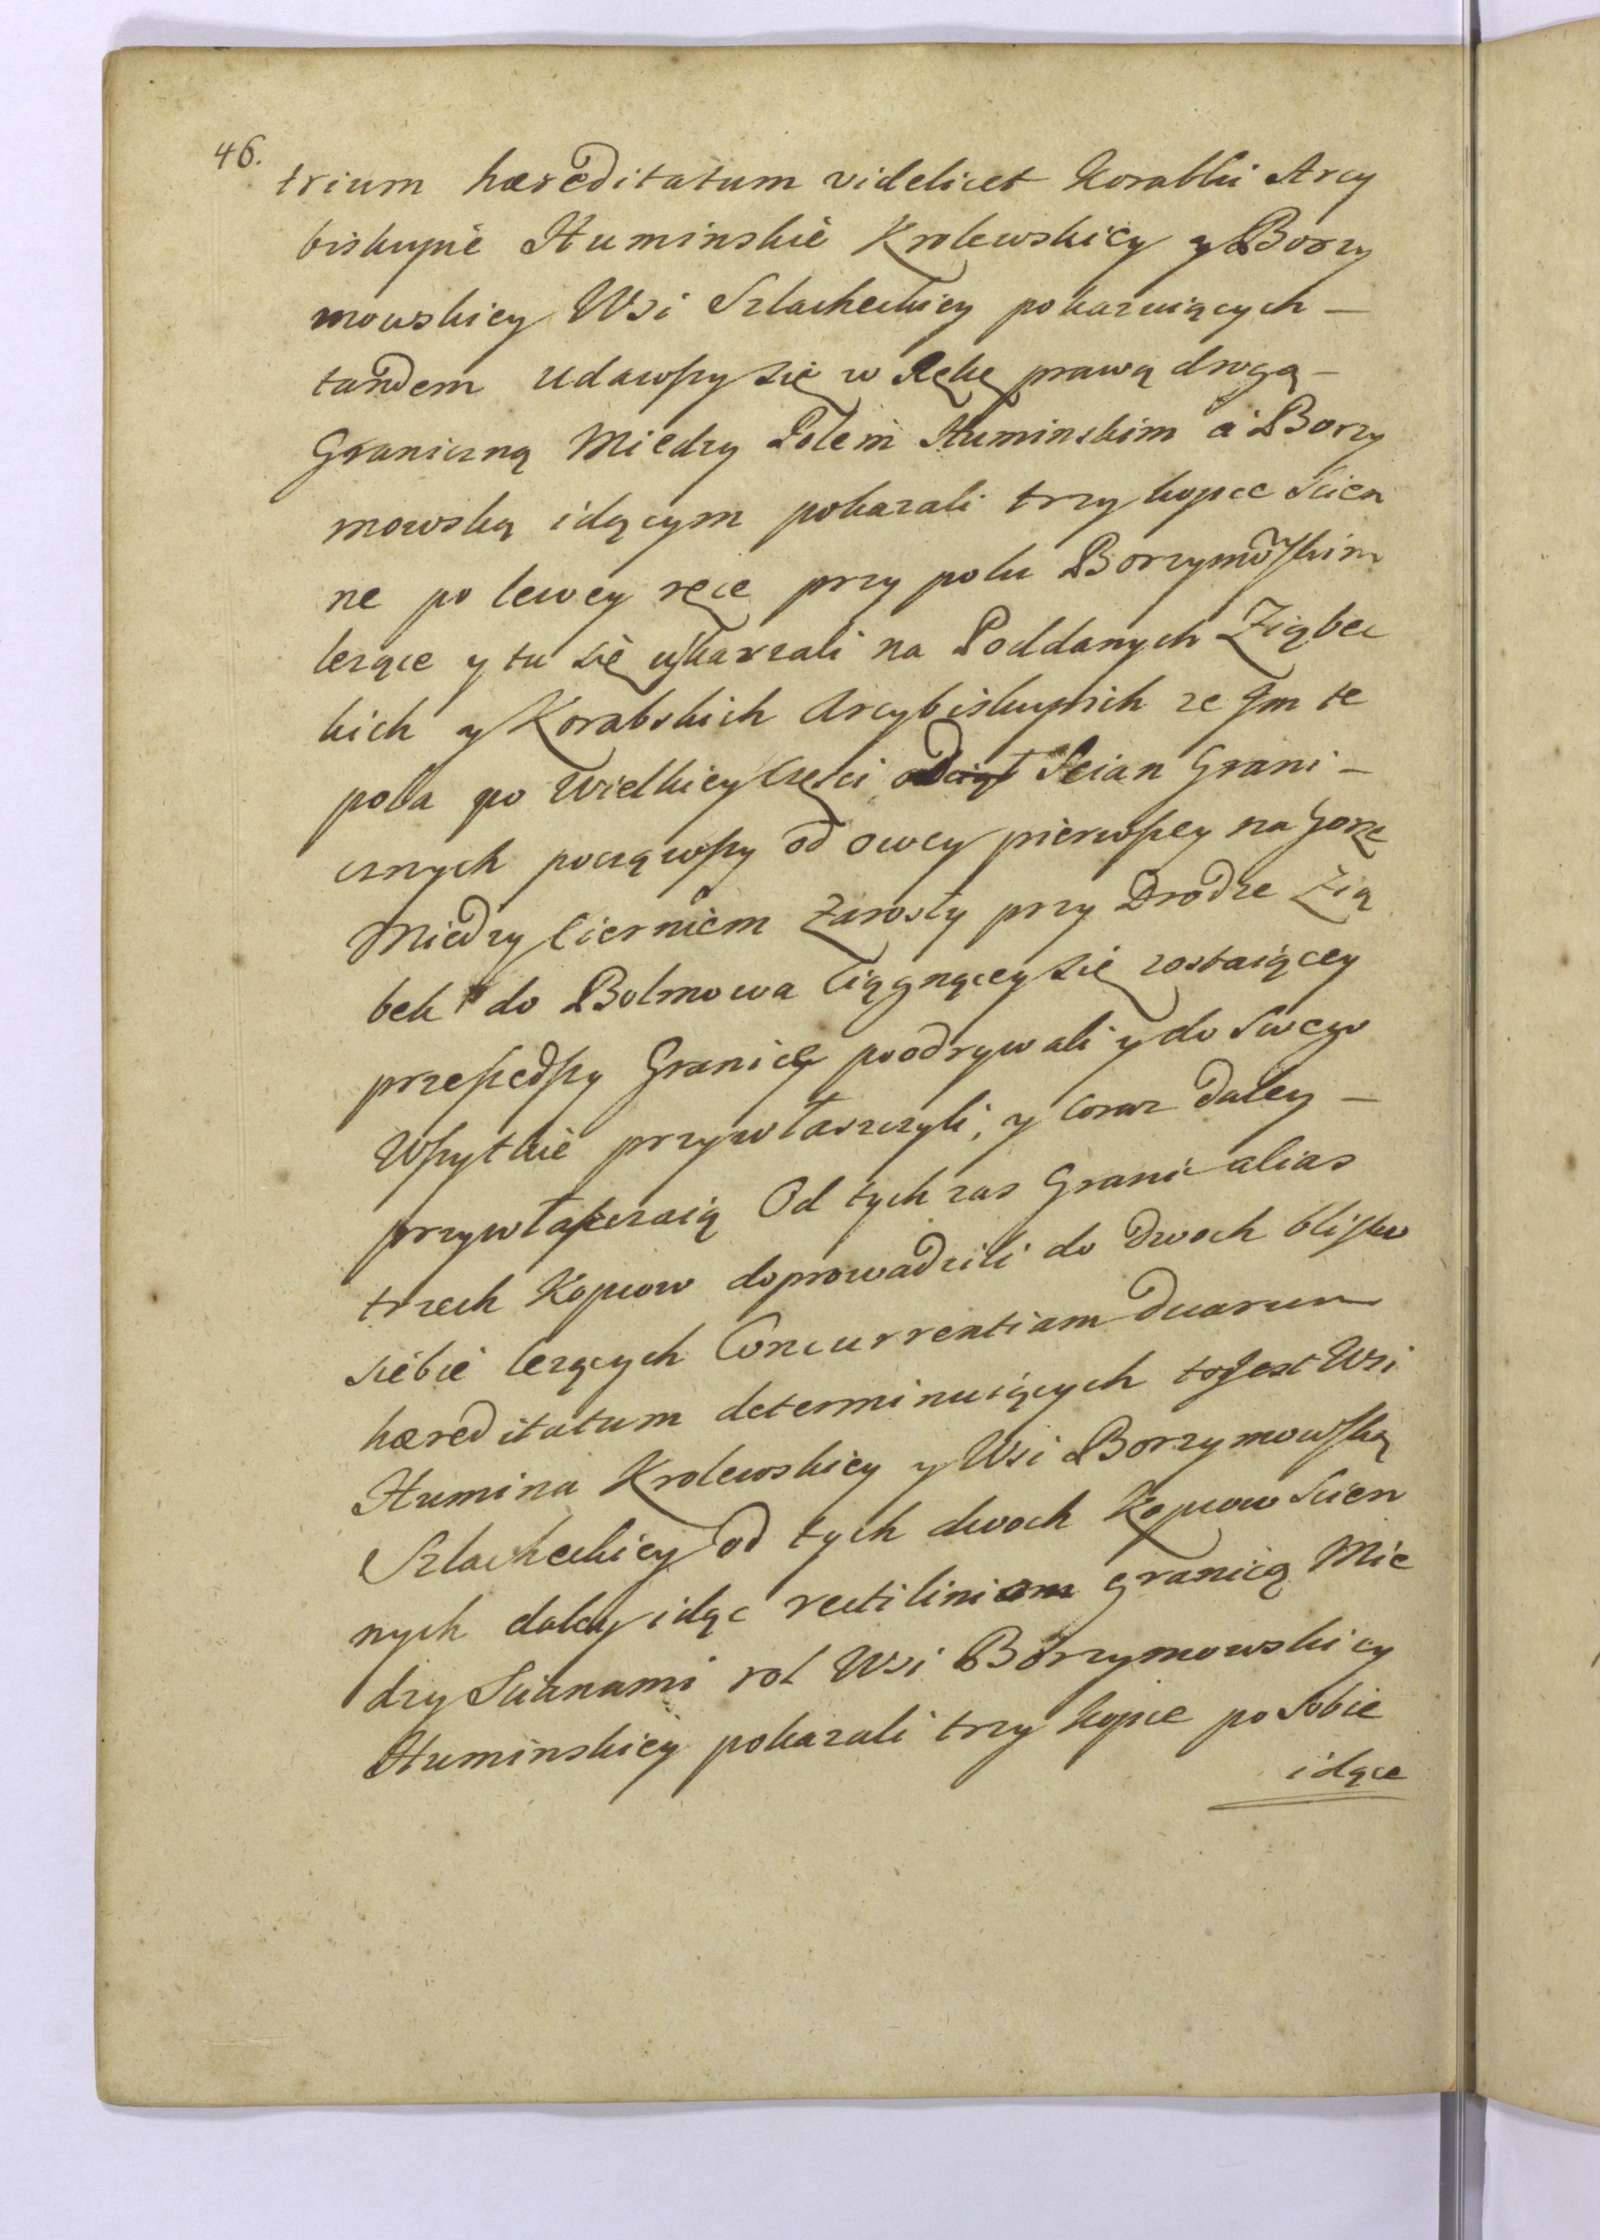 46.
trium hæreditatum videlicet Korabki Arcy
biskupie Huminskie Krolewskiey y Borzy
mowskiey Wsi Szlacheckiey pokazuiących —
tandem udawszy się w Rękę prawą drogą —
Graniczną Miedzy Polem Huminskim a Borzy
mowską idącym pokazali trzy kopce Scien
ne po lewey ręce przy polu Borzymowskim
lezące y tu się uskarzali na Poddanych Ziąbec
kich y Korabskich Arcybiskupich ze Im te
pola po Wielkiey Częsci Scian Grani —
cznych począwszy od owey pierwszey na Gorze
Miedzy Cierniem Zarosły przy Drodze Zią
bek do Bolmowa Ciągnącey się zostaiącey
przeszedszy Granicę poodrywali y do Swego
Wszytkie przywłaszczyli, y Coraz Daley —
przywłaszczaią Od tych zas Granic alias
trzech Kopcow doprowadzili do Dwoch blisko
siebie lezących Concurrentiam Duarum
hæreditatum determinuiących to Jest Wsi
Humina Krolewskiey y Wsi Borzymowską
Szlacheckiey od tych dwoch Kopcow Scien
nych daley idąc rectiliniam granicą Mie
dzy Scianami rol Wsi Borzymowskiey
Huminskiey pokazali trzy kopce po Sobie
idące